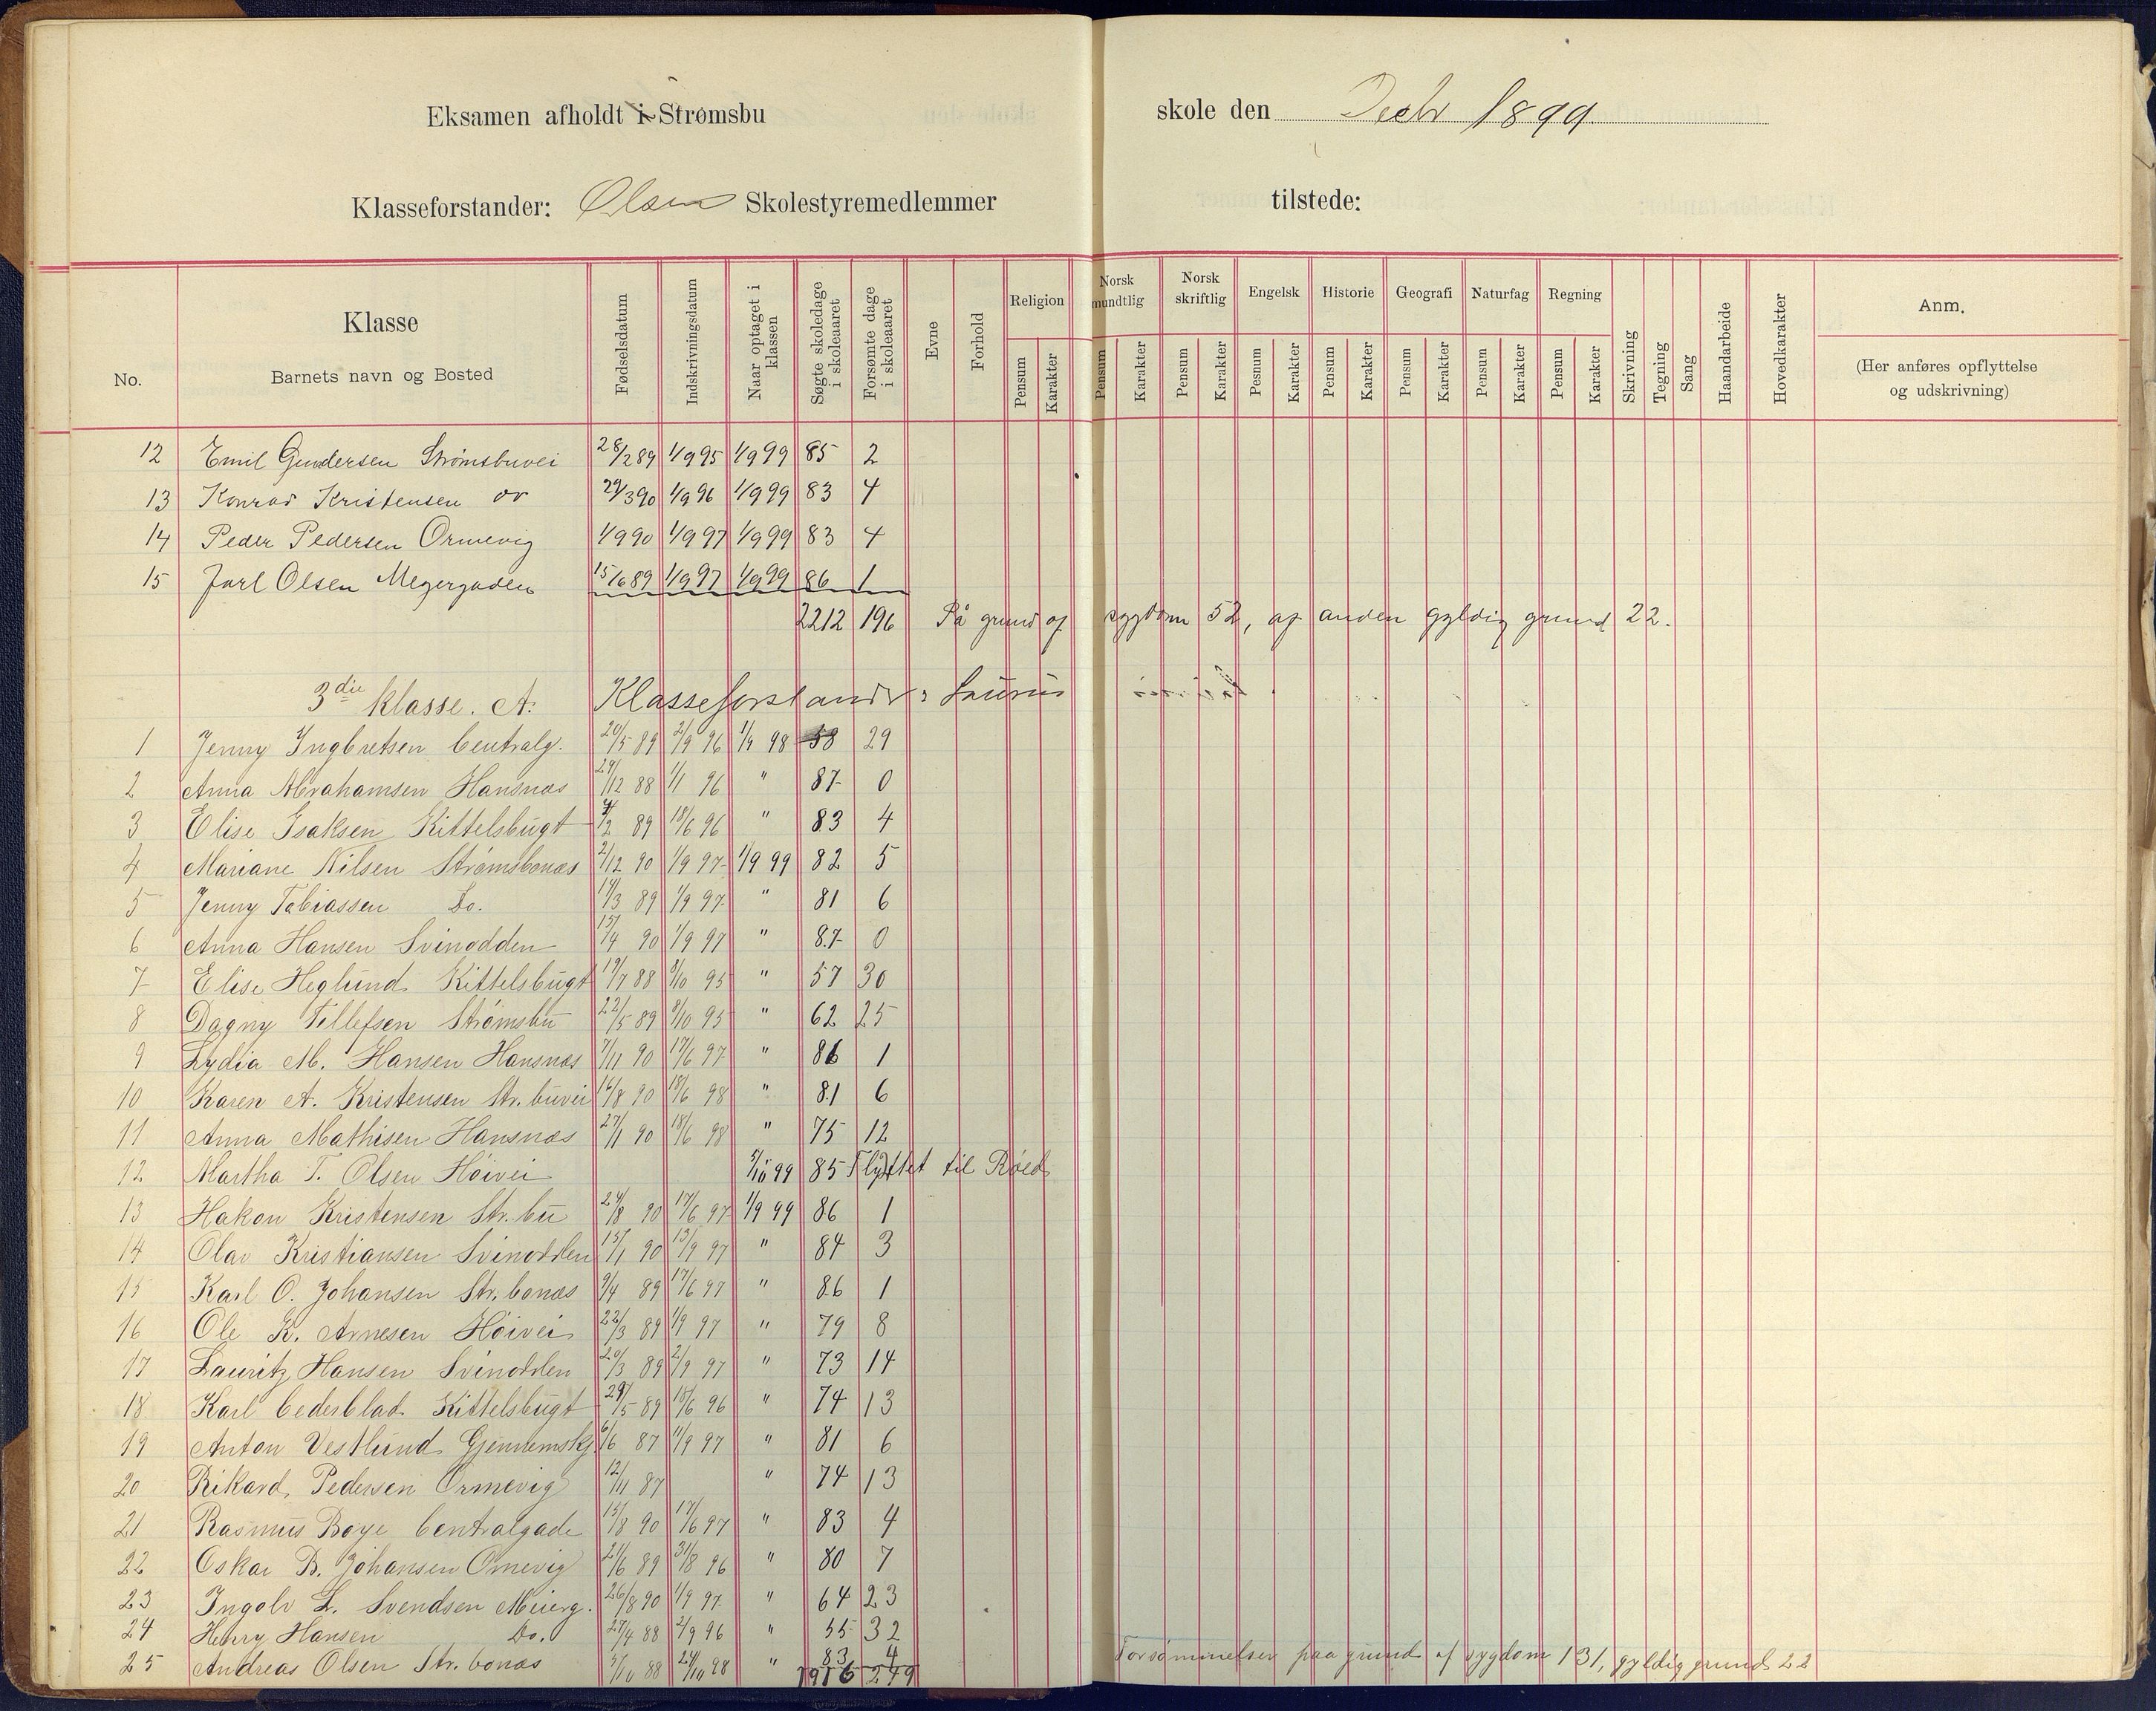 Eksamen afholdt i Strømsbu skole den Decbr 1899
Klasseforstander: Olsen Skolestyremedlemmer tilstede:
No. Klasse Barnets navn og Bosted Fødselsdatum Indskrivningsdatum Naar optaget i klassen Søgte skoledage i skoleaaret Forsømte dage i skoleaaret Evne Forhold Religion Norsk mundtlig Norsk skriftlig Engelsk Historie Geografi Naturfag Regning Skrivning Tegning Sang Haandarbeide Hovedkarakter Anm.
Pensum Karakter Pensum Karakter Pensum Karakter Pesnum Karakter Pensum Karakter Pensum Karakter Pensum Karakter Pensum Karakter (Her anføres opflyttelse og udskrivning)
12 Emil Gundersen Strømsbuvei 28/2 89 1/9 95 1/9 99 85 2
13 Konrad Kristensen do 29/3 90 1/9 96 1/9 99 83 4
14 Peder Pedersen Ormevig 1/9 90 1/9 97 1/9 99 83 4
15 Jarl Olsen Meyergaden 15/6 89 1/9 97 1/9 99 86 1
2212 196 På grund af sygdom 52, af anden gyldig grund 22.
3die klasse. A. Klasseforstander: Laurus
1 Jenny Ingbretsen Centralg. 20/5 89 2/9 96 1/9 98 58 29
2 Anna Abrahamsen Hansnæs 29/12 88 1/1 96 " 87 0
3 Elise Isaksen Kittelsbugt 4/2 89 18/6 96 " 83 4
4 Mariane Nilsen Strømsbonæs 2/12 90 1/9 97 1/9 99 82 5
5 Jenny Tobiassen Do. 14/3 89 1/9 97 " 81 6
6 Anna Hansen Svinodden 15/4 90 1/9 97 " 87 0
7 Elise Heglund Kittelsbugt 19/7 88 8/10 95 " 57 30
8 Dagny Tellefsen Strømsbu 22/5 89 8/10 95 " 62 25
9 Lydia M. Hansen Hansnæs 7/11 90 17/6 97 " 86 1
10 Karen A. Kristensen Str.buvei 16/8 90 18/6 98 " 81 6
11 Anna Mathisen Hansnæs 27/1 90 18/6 98 " 75 12
12 Martha T. Olsen Høivei 5/10 99 85 Flyttet til Røed
13 Hakon Kristensen Str.bu 24/8 90 17/6 97 1/9 99 86 1
14 Olav Kristiansen Svinodden 15/1 90 13/9 97 " 84 3
15 Karl O. Johansen Str.bonæs 9/4 89 17/6 97 " 86 1
16 Ole K. Arnesen Høivei 22/3 89 1/9 97 " 79 8
17 Lauritz Hansen Svinodden 20/3 89 2/9 97 " 73 14
18 Karl Cederblad Kittelsbugt 29/5 89 18/6 96 " 74 13
19 Anton Vestlund Gjennemskj. 6/6 87 11/9 97 " 81 6
20 Rikard Pedersen Ormevig 12/11 87 " 74 13
21 Rasmus Boye Centralgade 15/8 90 17/6 97 " 83 4
22 Oskar B. Johansen Omevig 21/6 89 31/8 96 " 80 7
23 Ingolv L. Svendsen Meierg. 26/8 90 1/9 97 " 64 23
24 Henry Hansen Do. 27/4 88 2/9 96 " 55 32
25 Andreas Olsen Str.bonæs 5/10 88 24/10 98 " 83 4
1916 249 Forsømmelser paa grund af sygdom 131, gyldig grund 22